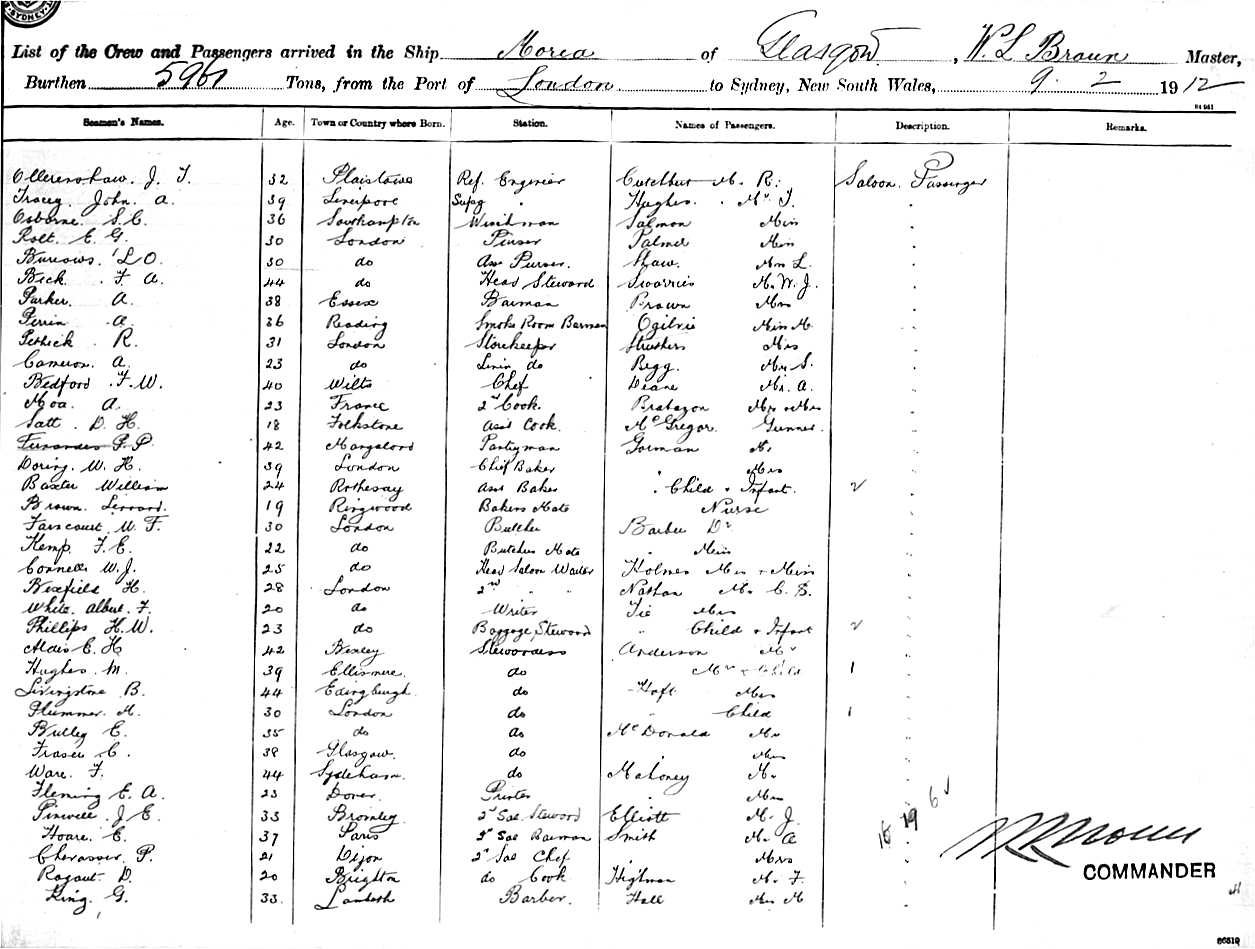 SYDNEY
List of the Crew and Passengers arrived in the Ship Morea of Glasgow, W. L. Braun Master,
Burthen 5961 Tons, from the Port of London to Sydney, New South Wales, 9. 2 1912
Seamen's Names. Age. Town or Country where Born. Station. Names of Passengers. Description. Remarks.
Ollerenshaw. J. T. 32 Plaistow Ref. Engineer M. R. Saloon. Passenger
Tracey John. A. 39 Liverpool Supg " Hughes. Mr. T.
Osborne. S. C. 36 Southampton Winchman Salmon Miss
Rolt. E. G. 30 London Purser Palmer Miss
Burrows. L O. 30 do Ass Purser. Shaw. Mrs L.
Beck. F. A. 44 do Head Steward M. W. J.
Parker. A. 38 Essex Barman Brown Mrs
Perrin A. 36 Reading Smoke Room Barman Ogilvie Miss M.
Pethick. R. 31 London Storekeeper Struthers Mrs
Cameron. A. 23 do Linen do Begg. Mr. S.
Bedford. F. W. 40 Wilts Chef Deane Mr. A.
Moa. A. 23 France 2nd Cook. Brabazon Mr & Mrs
Satt. D. H. 18 Folkstone Asst Cook. McGregor Gunner.
P. 42 Pantryman Gorman Mr
Doring. W. H. 39 London Chief Baker " Mrs
Baxter William 24 Rothesay Asst Baker " Child & Infant. 2
Brown. Leonard. 19 Ringwood Bakers Mate Nurse
Faircourt. W. F. 30 London Butcher Barber Dr
Kemp. F. E. 22 do Butchers Mate " Miss
Connell W. J. 25 do Head Saloon Waiter Holmes Mrs & Miss
Bexfield H. 28 London 2nd " " Nathan Mr. C. S.
White. Albert. F. 20 do Writer Tie Mrs
Phillips H. W. 23 do Baggage Steward " Child & Infant 2
Aldis E. H 42 Bexley Stewardess Anderson Mr
Hughes. M. 39 Ellismere. do Mrs & Child 1
Livingstone B. 44 Edingburgh. do Hoft Mrs
Plummer. M. 30 London do " Child 1
Bulley E. 35 do do McDonald Mr
Fraser C. 38 Glasgow. do " Mrs
Ware. F. 44 Sydenham. do Mahoney Mr.
Fleming E. A. 23 Dover. Printer " Mrs
Pinwill. J E. 33 Bromley 2nd Sal. Steward Elliott M. J.
Hoare. E. 37 Paris 2nd Sal Barman Smith M. A
P. 21 Dijon 2nd Sal Chef " Mrs
Ragaut. D. 20 Brighton do Cook Highman M. F.
King. G. 33. Lambeth Barber. Hall M
COMMANDER